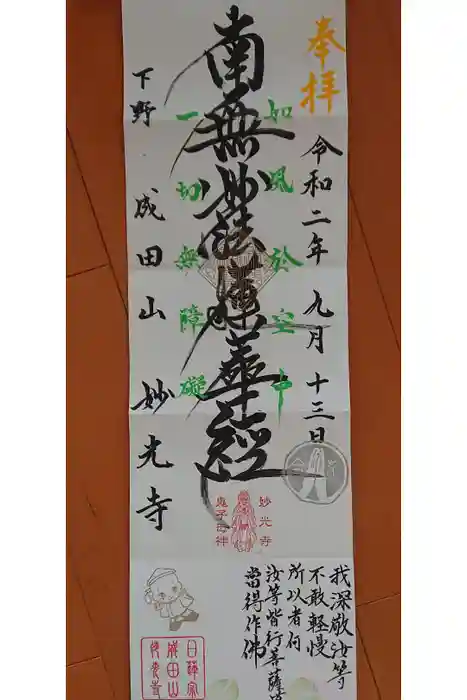 奉拝
令和二年 九月 十三日
如風於空中
南無妙法蓮華經
一切無障礙
下野 成田山 妙光寺
妙光寺
鬼子母神
我深敬汝等
不敢軽慢
所以者何
汝等皆行菩薩
當得作佛
日蓮宗
成田山
妙光寺